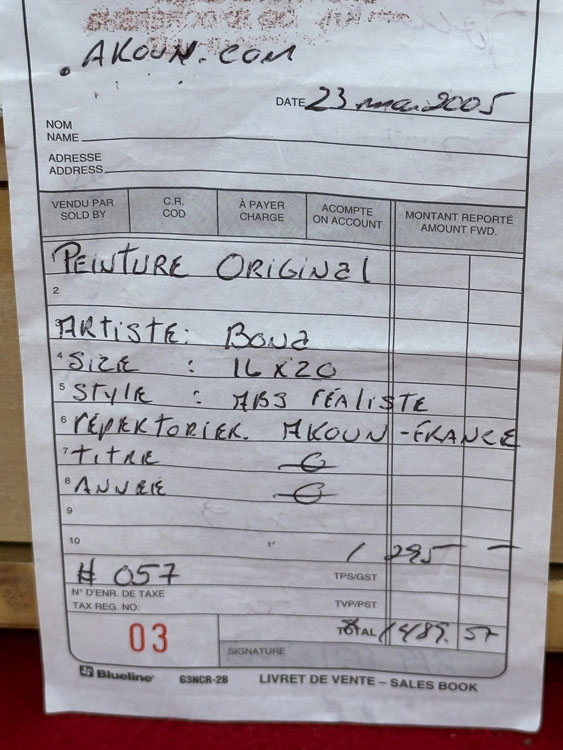 . AKOUN.COM
DATE 23 mai 2005
NOM
NAME
ADRESSE
ADDRESS
VENDU PAR
SOLD BY
C.R.
COD
À PAYER
CHARGE
ACOMPTE
ON ACCOUNT
MONTANT REPORTÉ
AMOUNT FWD.
1 PEINTURE ORIGINAL
2
ARTISTE: BONA
4 SIZE : 16 x 20
5 STYLE : ABS RÉALISTE
6 RÉPERTORIER. AKOUN - FRANCE
7 TITRE
8 ANNÉE
9
10 1 295 —
# 057 TPS/GST
N° D'ENR. DE TAXE
TAX REG. NO:
TVP/PST
03
TOTAL 1489. 57
SIGNATURE
Blueline G3NCR-2B LIVRET DE VENTE – SALES BOOK